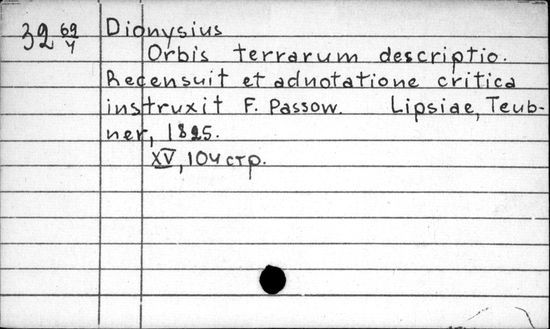 39 69/4 Dionysius
Orbis terrarum descriptio.
Recensuit et adnotatione critica
instruxit F. Passow. Lipsiae, Teub-
ner, 1825.
XV, 104 стр.